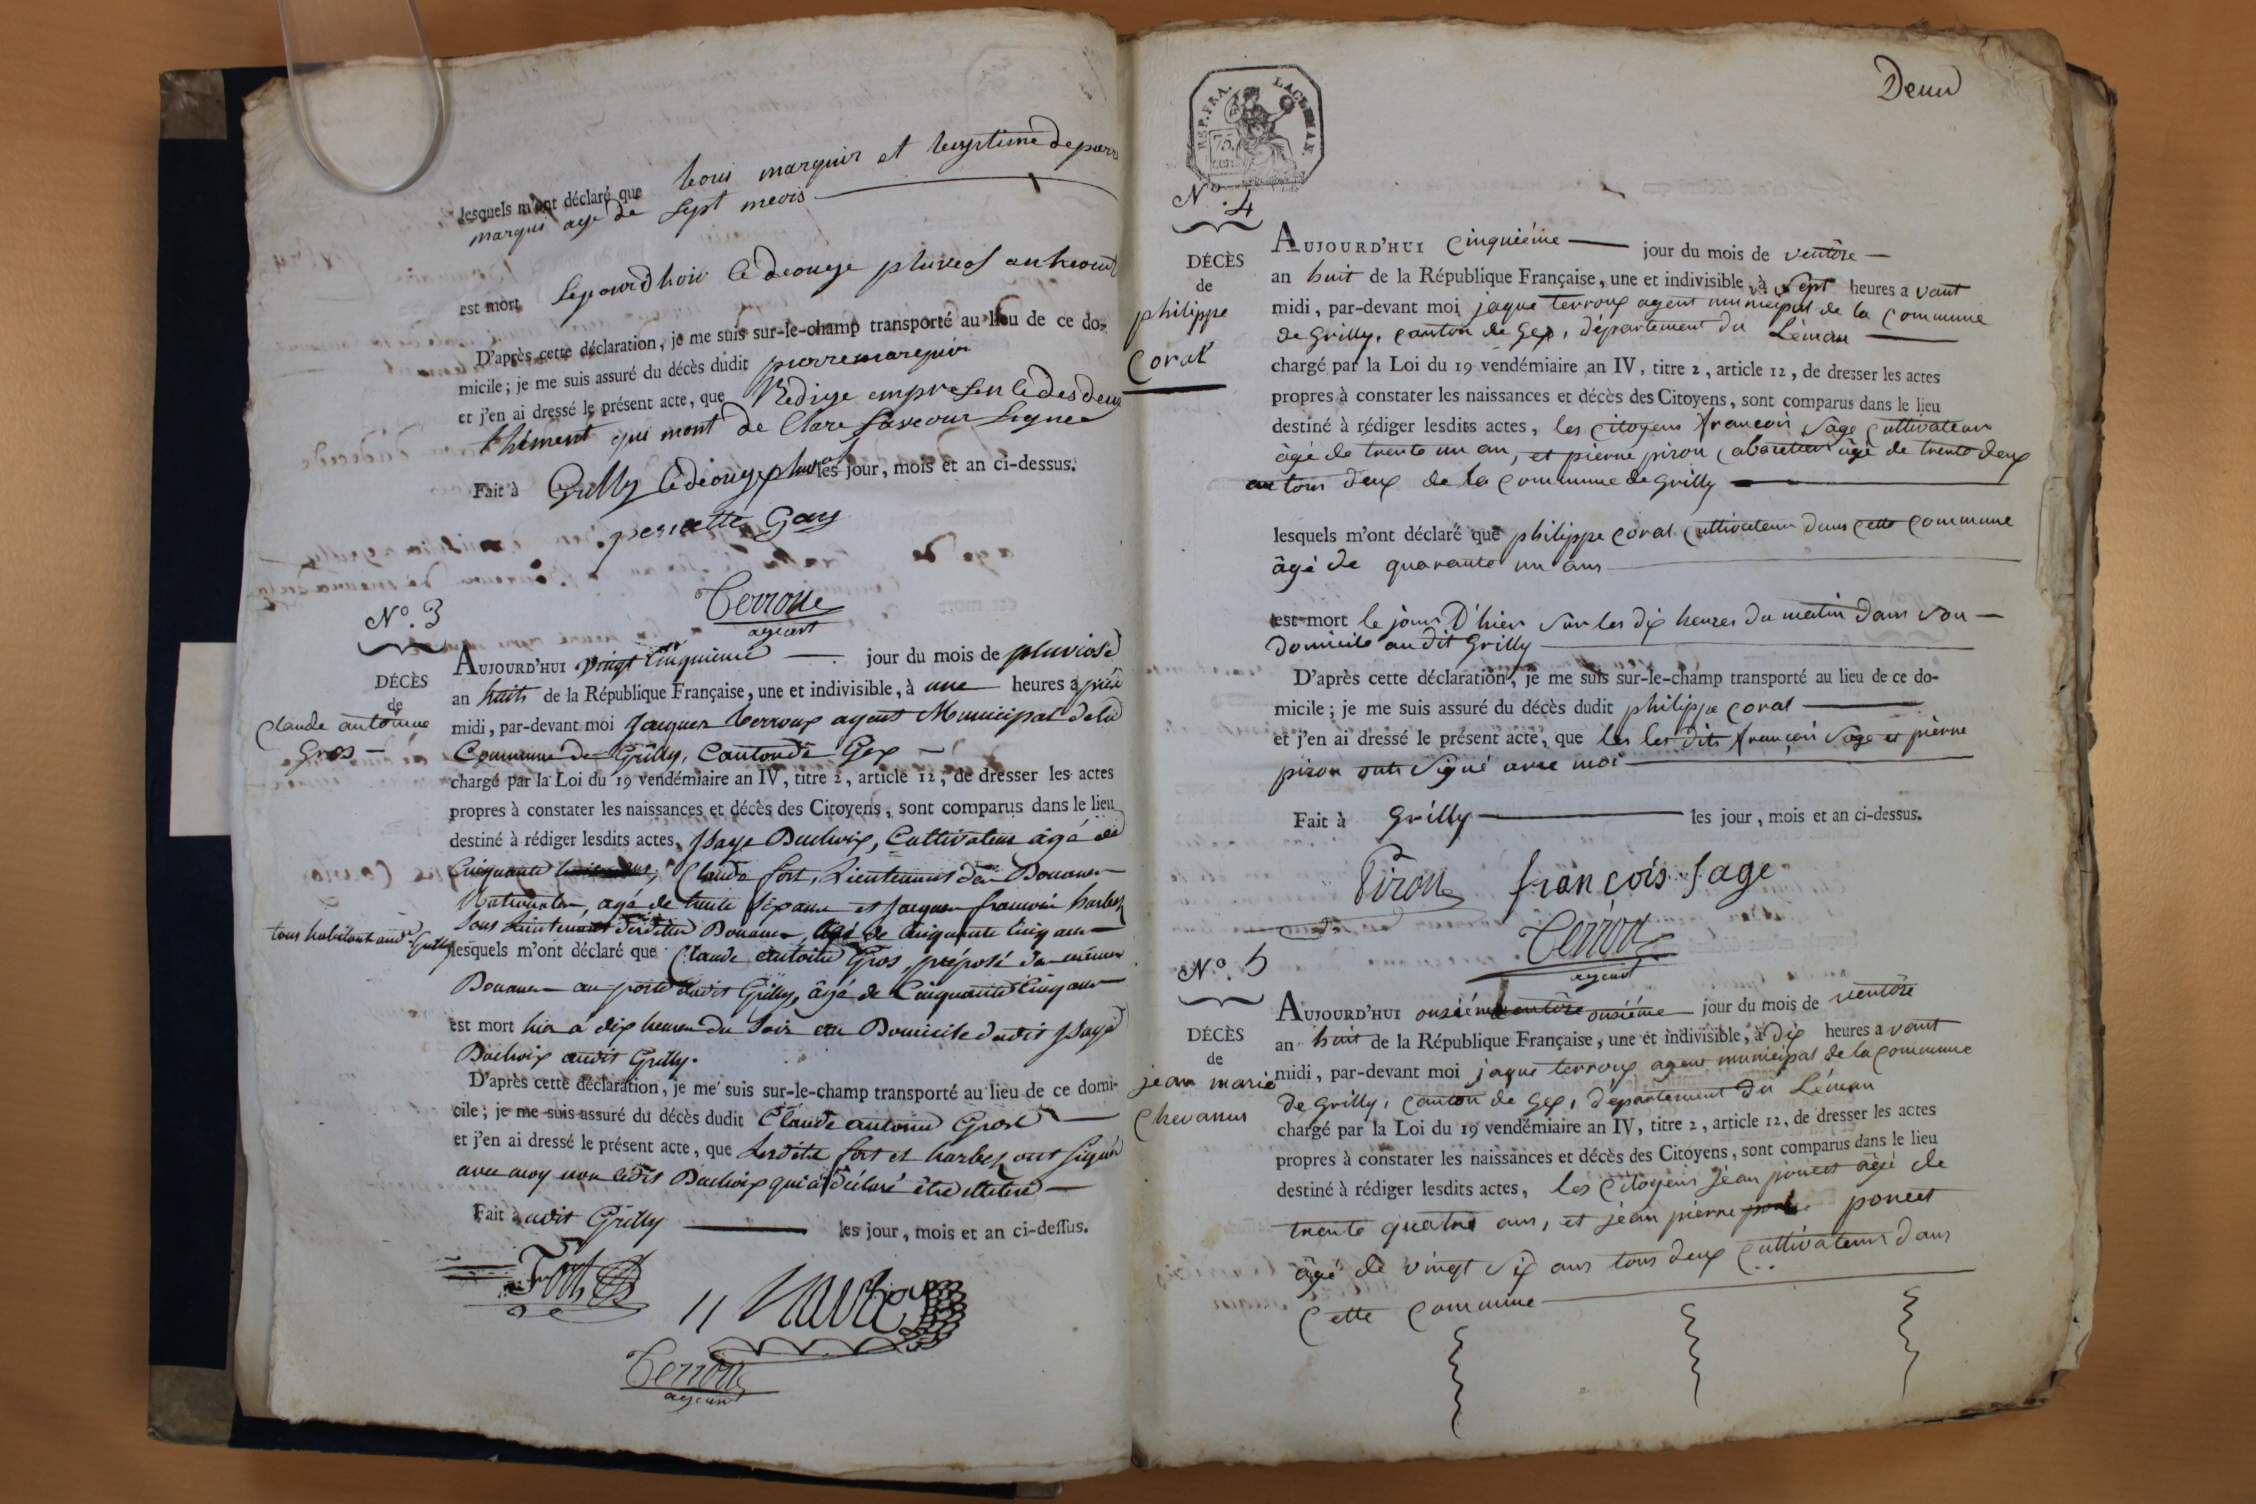 lesquels m'ont déclaré que Louis marquis et legitime de pierre
marquis agé de sept meois
est mort
D'après cette déclaration, je me suis sur-le-champ transporté au lieu de ce do-
micile ; je me suis assuré du décès dudit pierre marquis
et j'en ai dressé le présent acte, que Redige
qui mont de Clare
Fait à Grilly les jour, mois et an ci-dessus.
pernette Gay
Terroux
agent
N.º 3
DÉCÈS
de
Claude antoine
Gros
AUJOURD'HUI vingt Cinquieme jour du mois de pluviose
an huit de la République Française, une et indivisible, à une heures après
midi, par-devant moi Jacques terroux agent Municipal de la
Commune de Grilly, Canton de Gex
chargé par la Loi du 19 vendémiaire an IV, titre 2, article 12, de dresser les actes
propres à constater les naissances et décès des Citoyens, sont comparus dans le lieu
destiné à rédiger lesdits actes, Cultivateur âgé de
Cinquante Claude fort, Lieutenant des Douanes
Nationales, agé de trente six ans et Jacques francois harbez
Sous Lieutenant desdittes Douanes, âgé de Cinquante Cinq ans
tous habitant audt Grilly
lesquels m'ont déclaré que Claude antoine Gros, préposé des mêmes
Douanes au poste dudit Grilly, âgé de Cinquante Cinq ans
est mort hier à dix heures du Soir au Domicile dudit
audit Grilly.
D'après cette déclaration, je me suis sur-le-champ transporté au lieu de ce domi-
cile ; je me suis assuré du décès dudit Claude antoine Gros
et j'en ai dressé le présent acte, que Lesdits fort et harbez ont signés
avec moy non ledit qui a déclaré être illetré
Fait audit Grilly les jour, mois et an ci-dessus.
Fort
Terroux
agent
Deux
REP. FRA.
75
CEN.
N.º 4
DÉCÈS
de
philippe
Coral
AUJOURD'HUI Cinquiéme jour du mois de ventôse
an huit de la République Française, une et indivisible, à sept heures avant
midi, par-devant moi jaque terroux agent municipal de la Commune
de Grilly, canton de Gex, département du Léman
chargé par la Loi du 19 vendémiaire an IV, titre 2, article 12, de dresser les actes
propres à constater les naissances et décès des Citoyens, sont comparus dans le lieu
destiné à rédiger lesdits actes, les citoyens françois Sage Cultivateur
âgé de trente un an, et pierre piron Cabaretier âgé de trente deux
an tous deux de la Commune de Grilly
lesquels m'ont déclaré que philippe Coral Cultivateur dans cette Commune
âgé de quarante un ans
est mort le jour D'hier sur les dix heures du matin dans son
domicile audit Grilly
D'après cette déclaration, je me suis sur-le-champ transporté au lieu de ce do-
micile ; je me suis assuré du décès dudit philippe Coral
et j'en ai dressé le présent acte, que les les dits françois Sage et pierre
piron ont signé avec moi
Fait à Grilly les jour, mois et an ci-dessus.
Piron françois Sage
Terroux
agent
N.º 5
DÉCÈS
de
jean marie
Chevanus
AUJOURD'HUI onziéme ventôse onziéme jour du mois de ventôse
an huit de la République Française, une et indivisible, à dix heures avant
midi, par-devant moi jaque terroux agent municipal de la Commune
de Grilly, canton de Gex, département du Léman
chargé par la Loi du 19 vendémiaire an IV, titre 2, article 12, de dresser les actes
propres à constater les naissances et décès des Citoyens, sont comparus dans le lieu
destiné à rédiger lesdits actes, les Citoyens jean poncet âgé de
trente quatre ans, et jean pierre poncet
âgé de vingt six ans tous deux Cultivateurs dans
Cette Commune